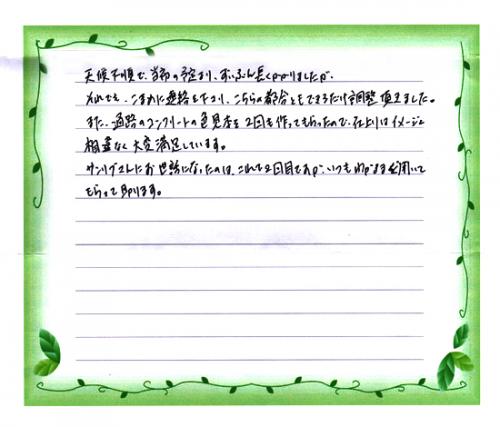 天候不順で、当初の予定より、ずいぶん長くかかりましたが、
それでも、こまめに連絡を下さり、こちらの都合ともできるだけ調整頂きました。
また、通路のコンクリートの色見本を2回も作ってもらったので、仕上りはイメージと
相違なく大変満足しています。
サンリブさんにお世話になったのは、これで2回目ですが、いつもわがままを聞いて
もらって助かります。